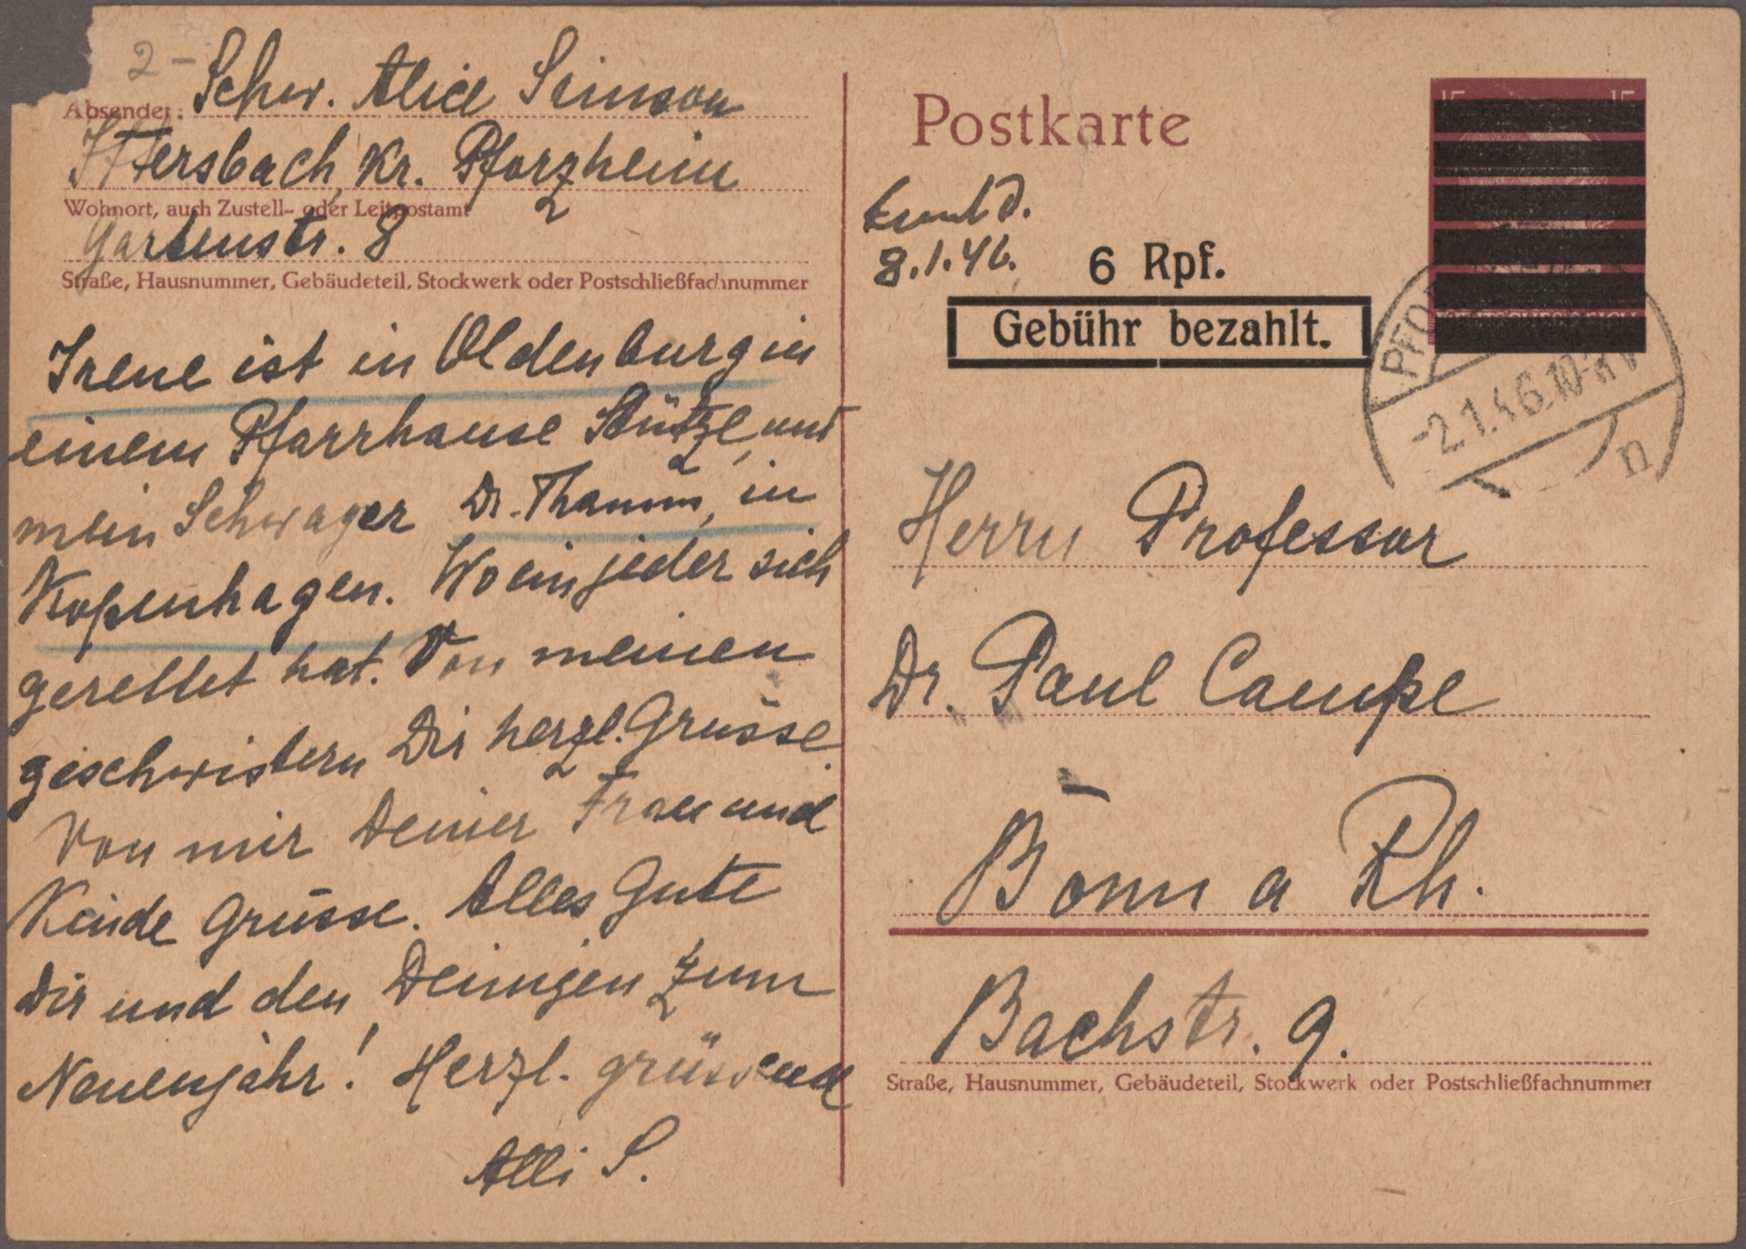 2 -
Absender: Schw. Alice Simson
Ittersbach, Kr. Pforzheim
Wohnort, auch Zustell- oder Leitpostamt
Gartenstr. 8
Straße, Hausnummer, Gebäudeteil, Stockwerk oder Postschließfachnummer
Irene ist in Oldenburg in
einem Pfarrhause Stütze, und
mein Schwager Dr. Thamm, in
Kopenhagen. Wo ein jeder sich
gerettet hat. Von meinen
geschwistern Dir herzl. Grüsse.
Von mir Deiner Frau und
Kinde Grüsse. Alles Gute
Dir und den Deinigen zum
Neuenjahr! Herzl. grüssend
Alli S.
Postkarte
15 15
8.1.46.
6 Rpf.
Gebühr bezahlt.
-2.1.46.10-
n
Herrn Professor
Dr. Paul Campe
Bonn a Rh.
Bachstr. 9.
Straße, Hausnummer, Gebäudeteil, Stockwerk oder Postschließfachnummer